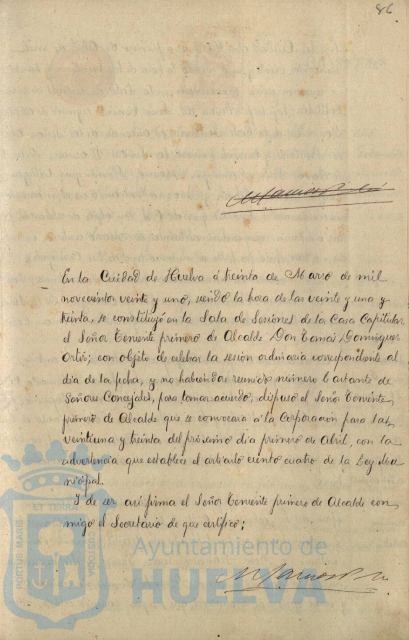 86
En la Ciudad de Huelva á treinta de Marzo de mil
novecientos veinte y uno, siendo la hora de las veinte y una y
treinta, se constituyó en la Sala de Sesiones de la Casa Capitular
el Señor Teniente primero de Alcalde Don Tomás Dominguez
Ortiz; con objeto de celebrar la sesión ordinaria correspondiente al
dia de la fecha, y no habiendose reunido número bastante de
Señores Concejales, para tomar acuerdo, dispuso el Señor Teniente
primero de Alcalde que se convocara á la Corporación para las
veintiuna y treinta del próximo dia primero de Abril, con la
advertencia que establece el artículo ciento cuatro de la Ley Mu-
nicipal.
Y de ser así firma el Señor Teniente primero de Alcalde con-
migo el Secretario de que certifico;
PORTUS MARIS ET TERRÆ CUSTODIA
Ayuntamiento de
HUELVA